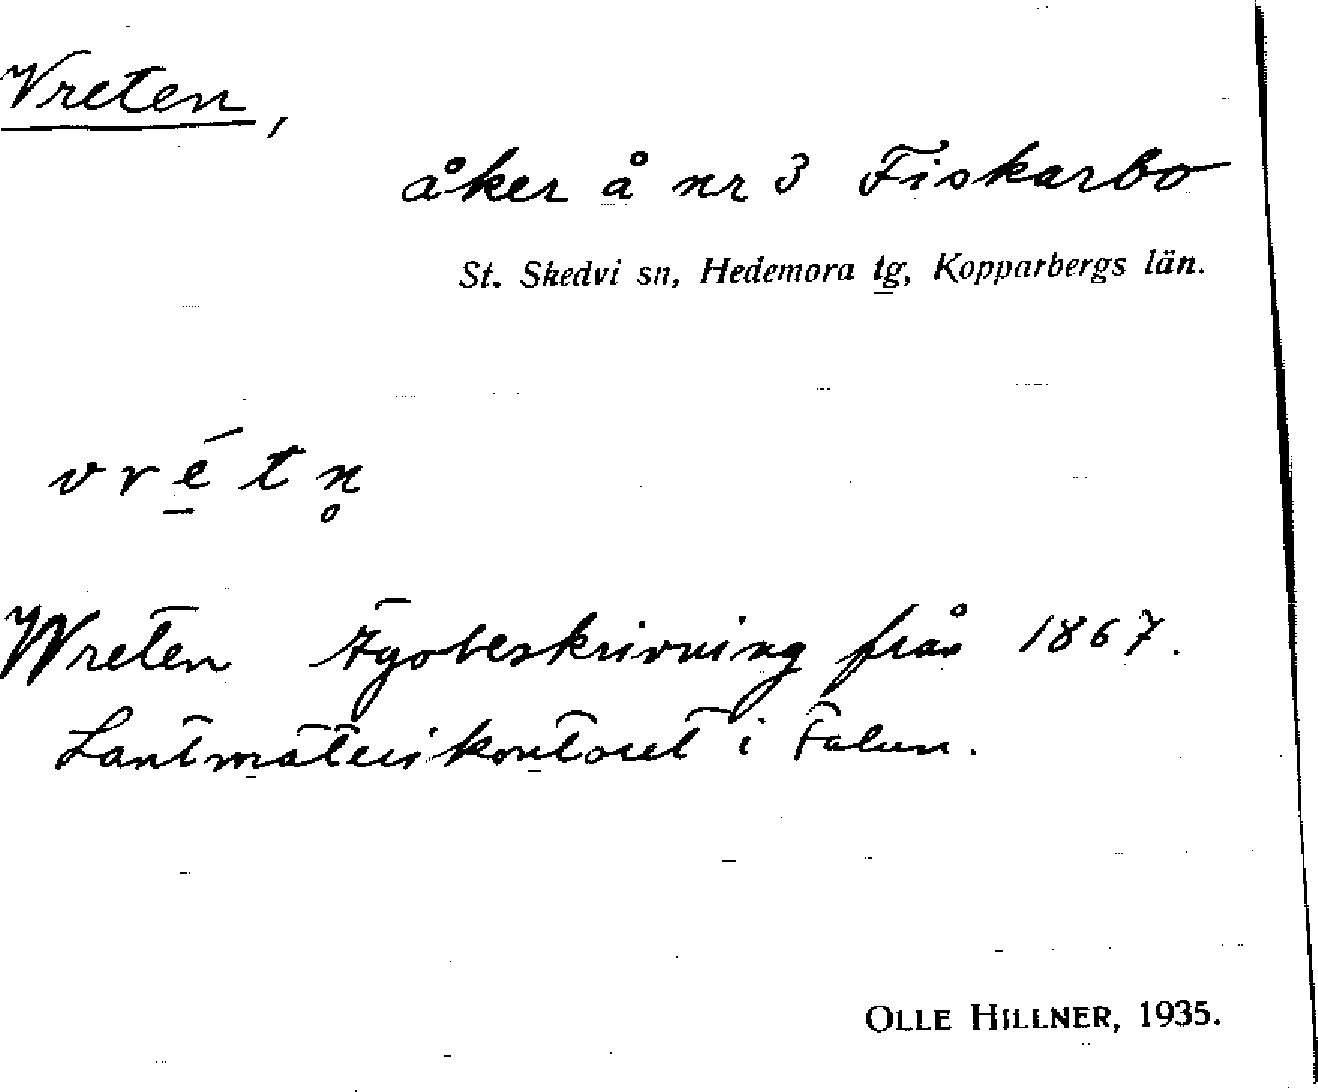 Vreten,
åker å nr 3 Fiskarbo
St. Skedvi sn, Hedemora tg, Kopparbergs län.
vré̲tn̥
Wreten Ägobeskrivning från 1867.
Lantmäterikontoret i Falun.
OLLE HILLNER, 1935.